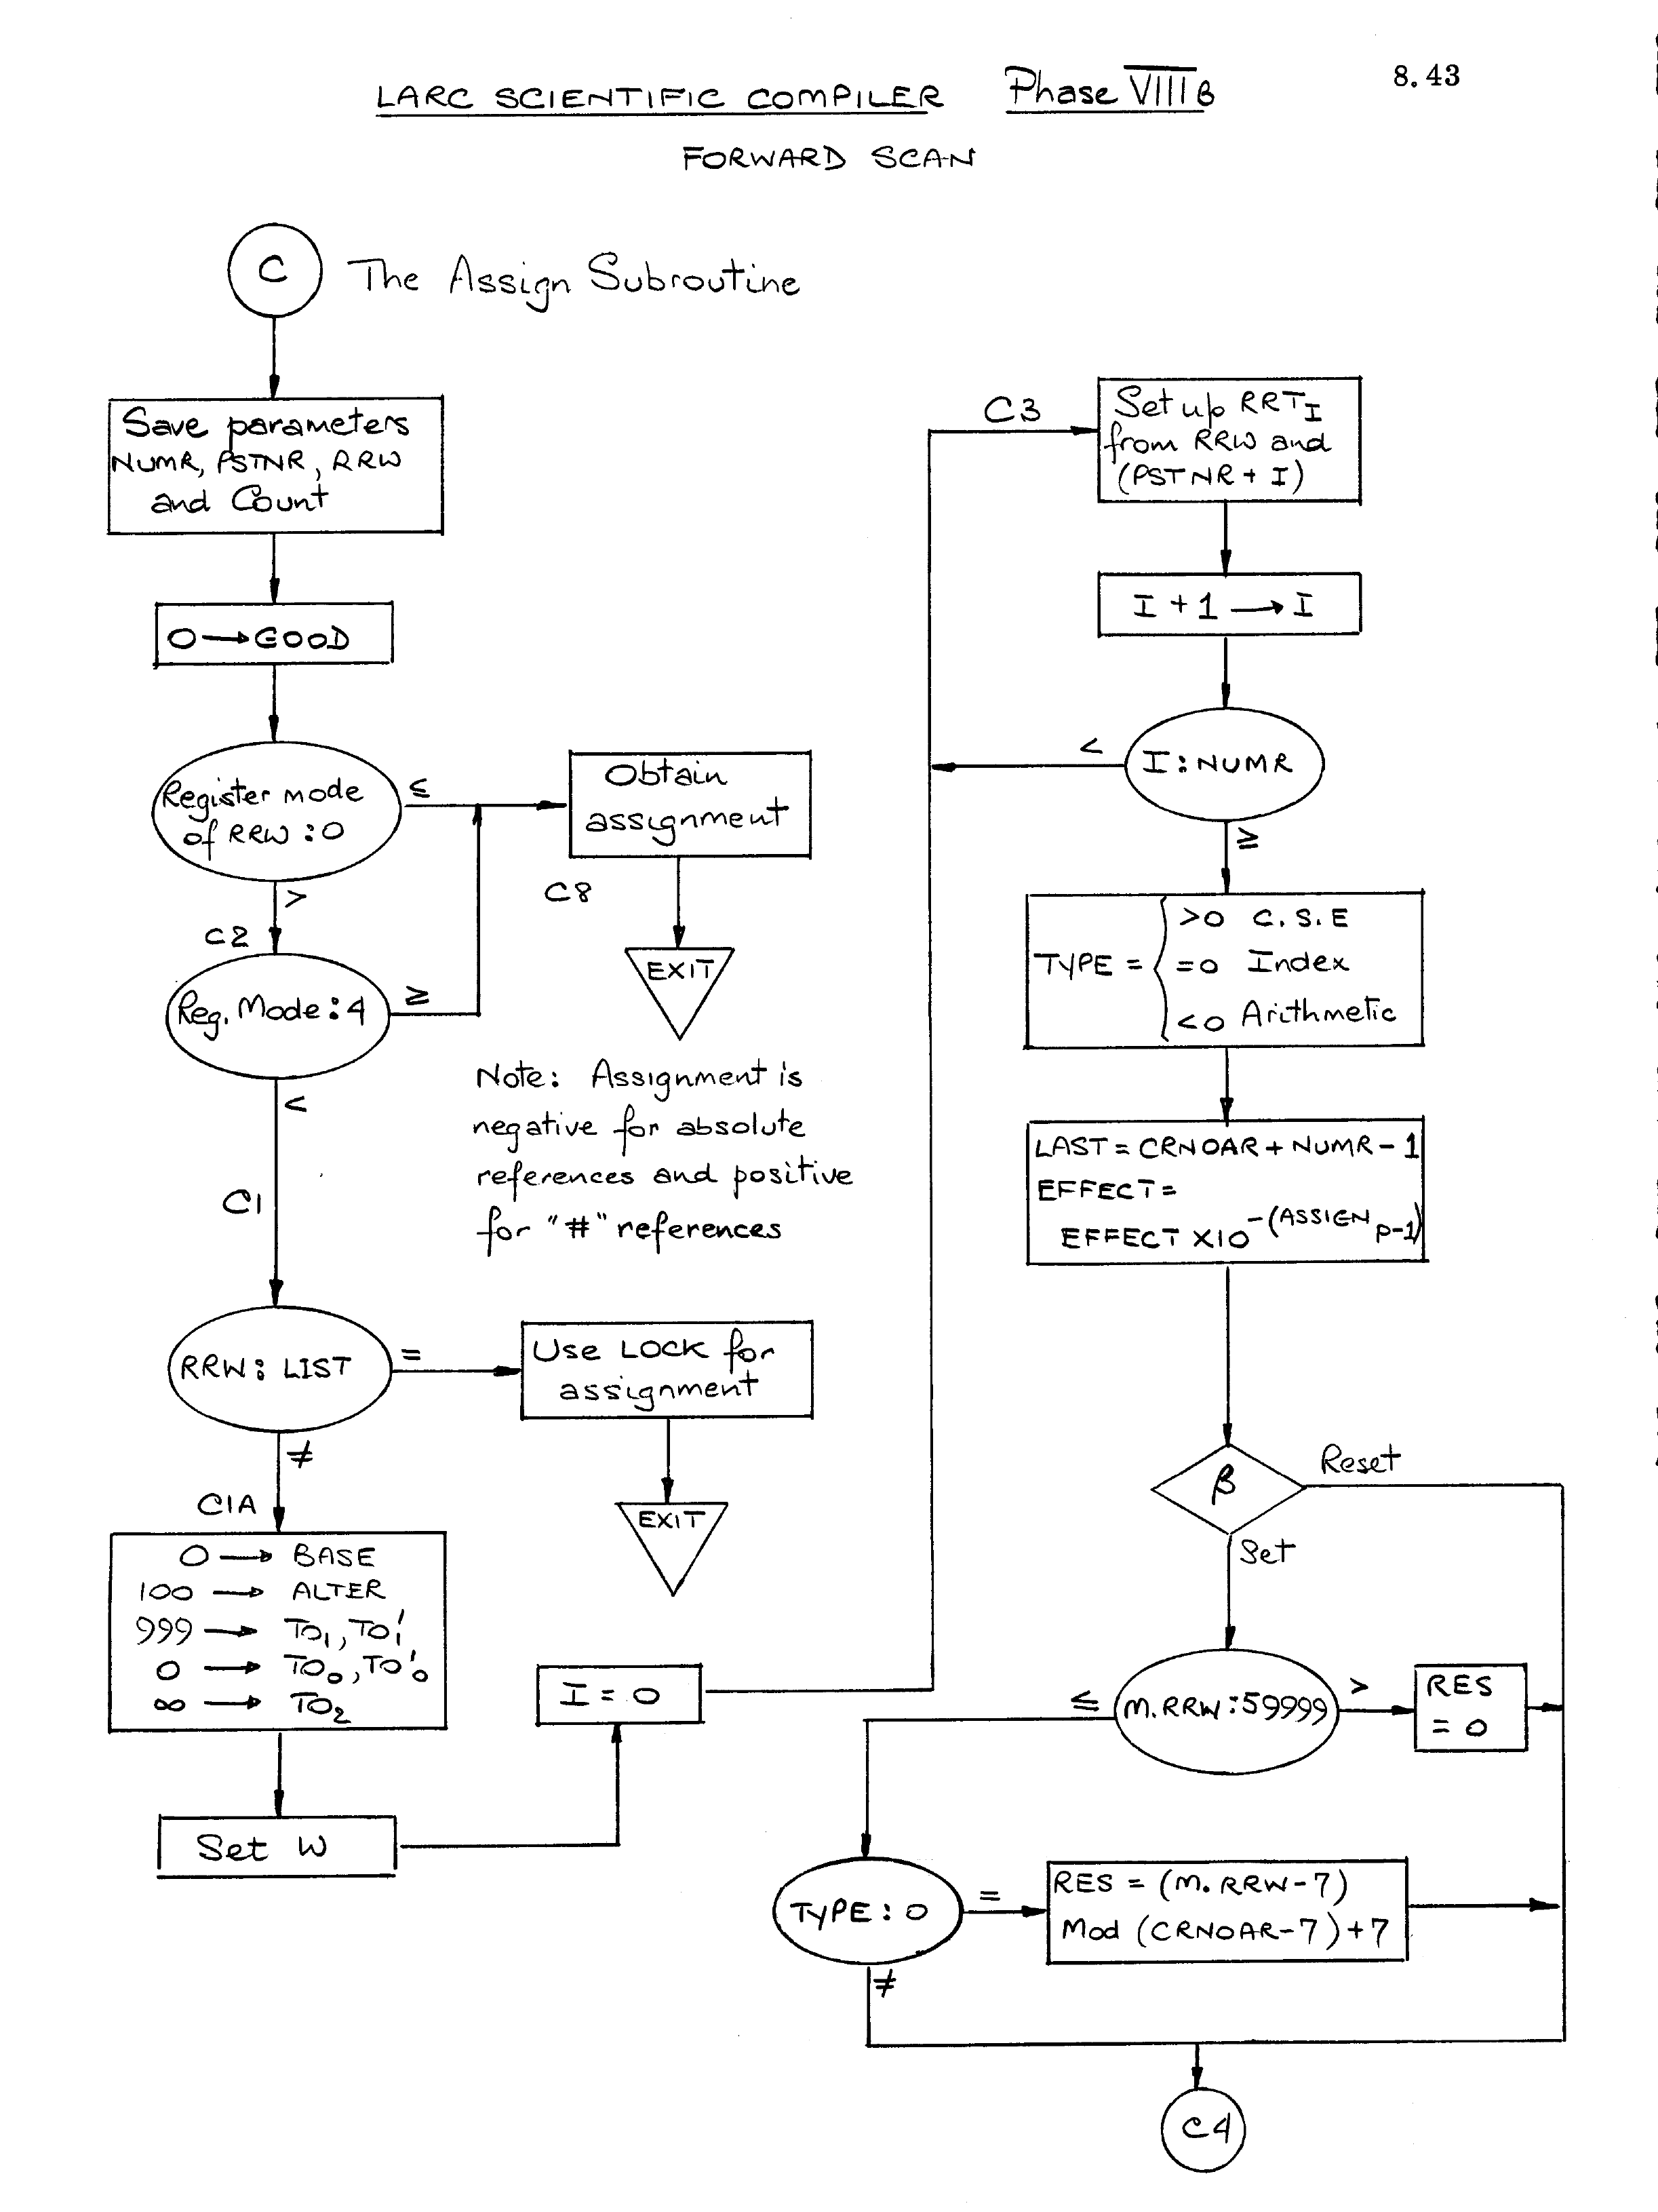 8.43
LARC SCIENTIFIC COMPILER Phase VIII B
FORWARD SCAN
C The Assign Subroutine
Save parameters
NUMR, PSTNR, RRW
and Count
0 → GOOD
Register mode
of RRW : 0
≤
>
Obtain
assignment
C8
EXIT
C2
Reg. Mode : 4
≥
<
Note: Assignment is
negative for absolute
references and positive
for "#" references
C1
RRW : LIST
=
≠
Use LOCK for
assignment
EXIT
C1A
0 → BASE
100 → ALTER
999 → TO₁, TO₁'
0 → TO₀, TO'₀
∞ → TO₂
Set W
I = 0
C3
Set up RRT_I
from RRW and
(PSTNR + I)
I + 1 → I
I : NUMR
<
≥
TYPE =
>0 C.S.E
=0 Index
<0 Arithmetic
LAST = CRNOAR + NUMR - 1
EFFECT =
EFFECT X10^-(ASSIGN_P-1)
β
Reset
Set
M.RRW : 59999
≤
>
RES
= 0
TYPE : 0
=
≠
RES = (M.RRW-7)
Mod (CRNOAR-7)+7
C4